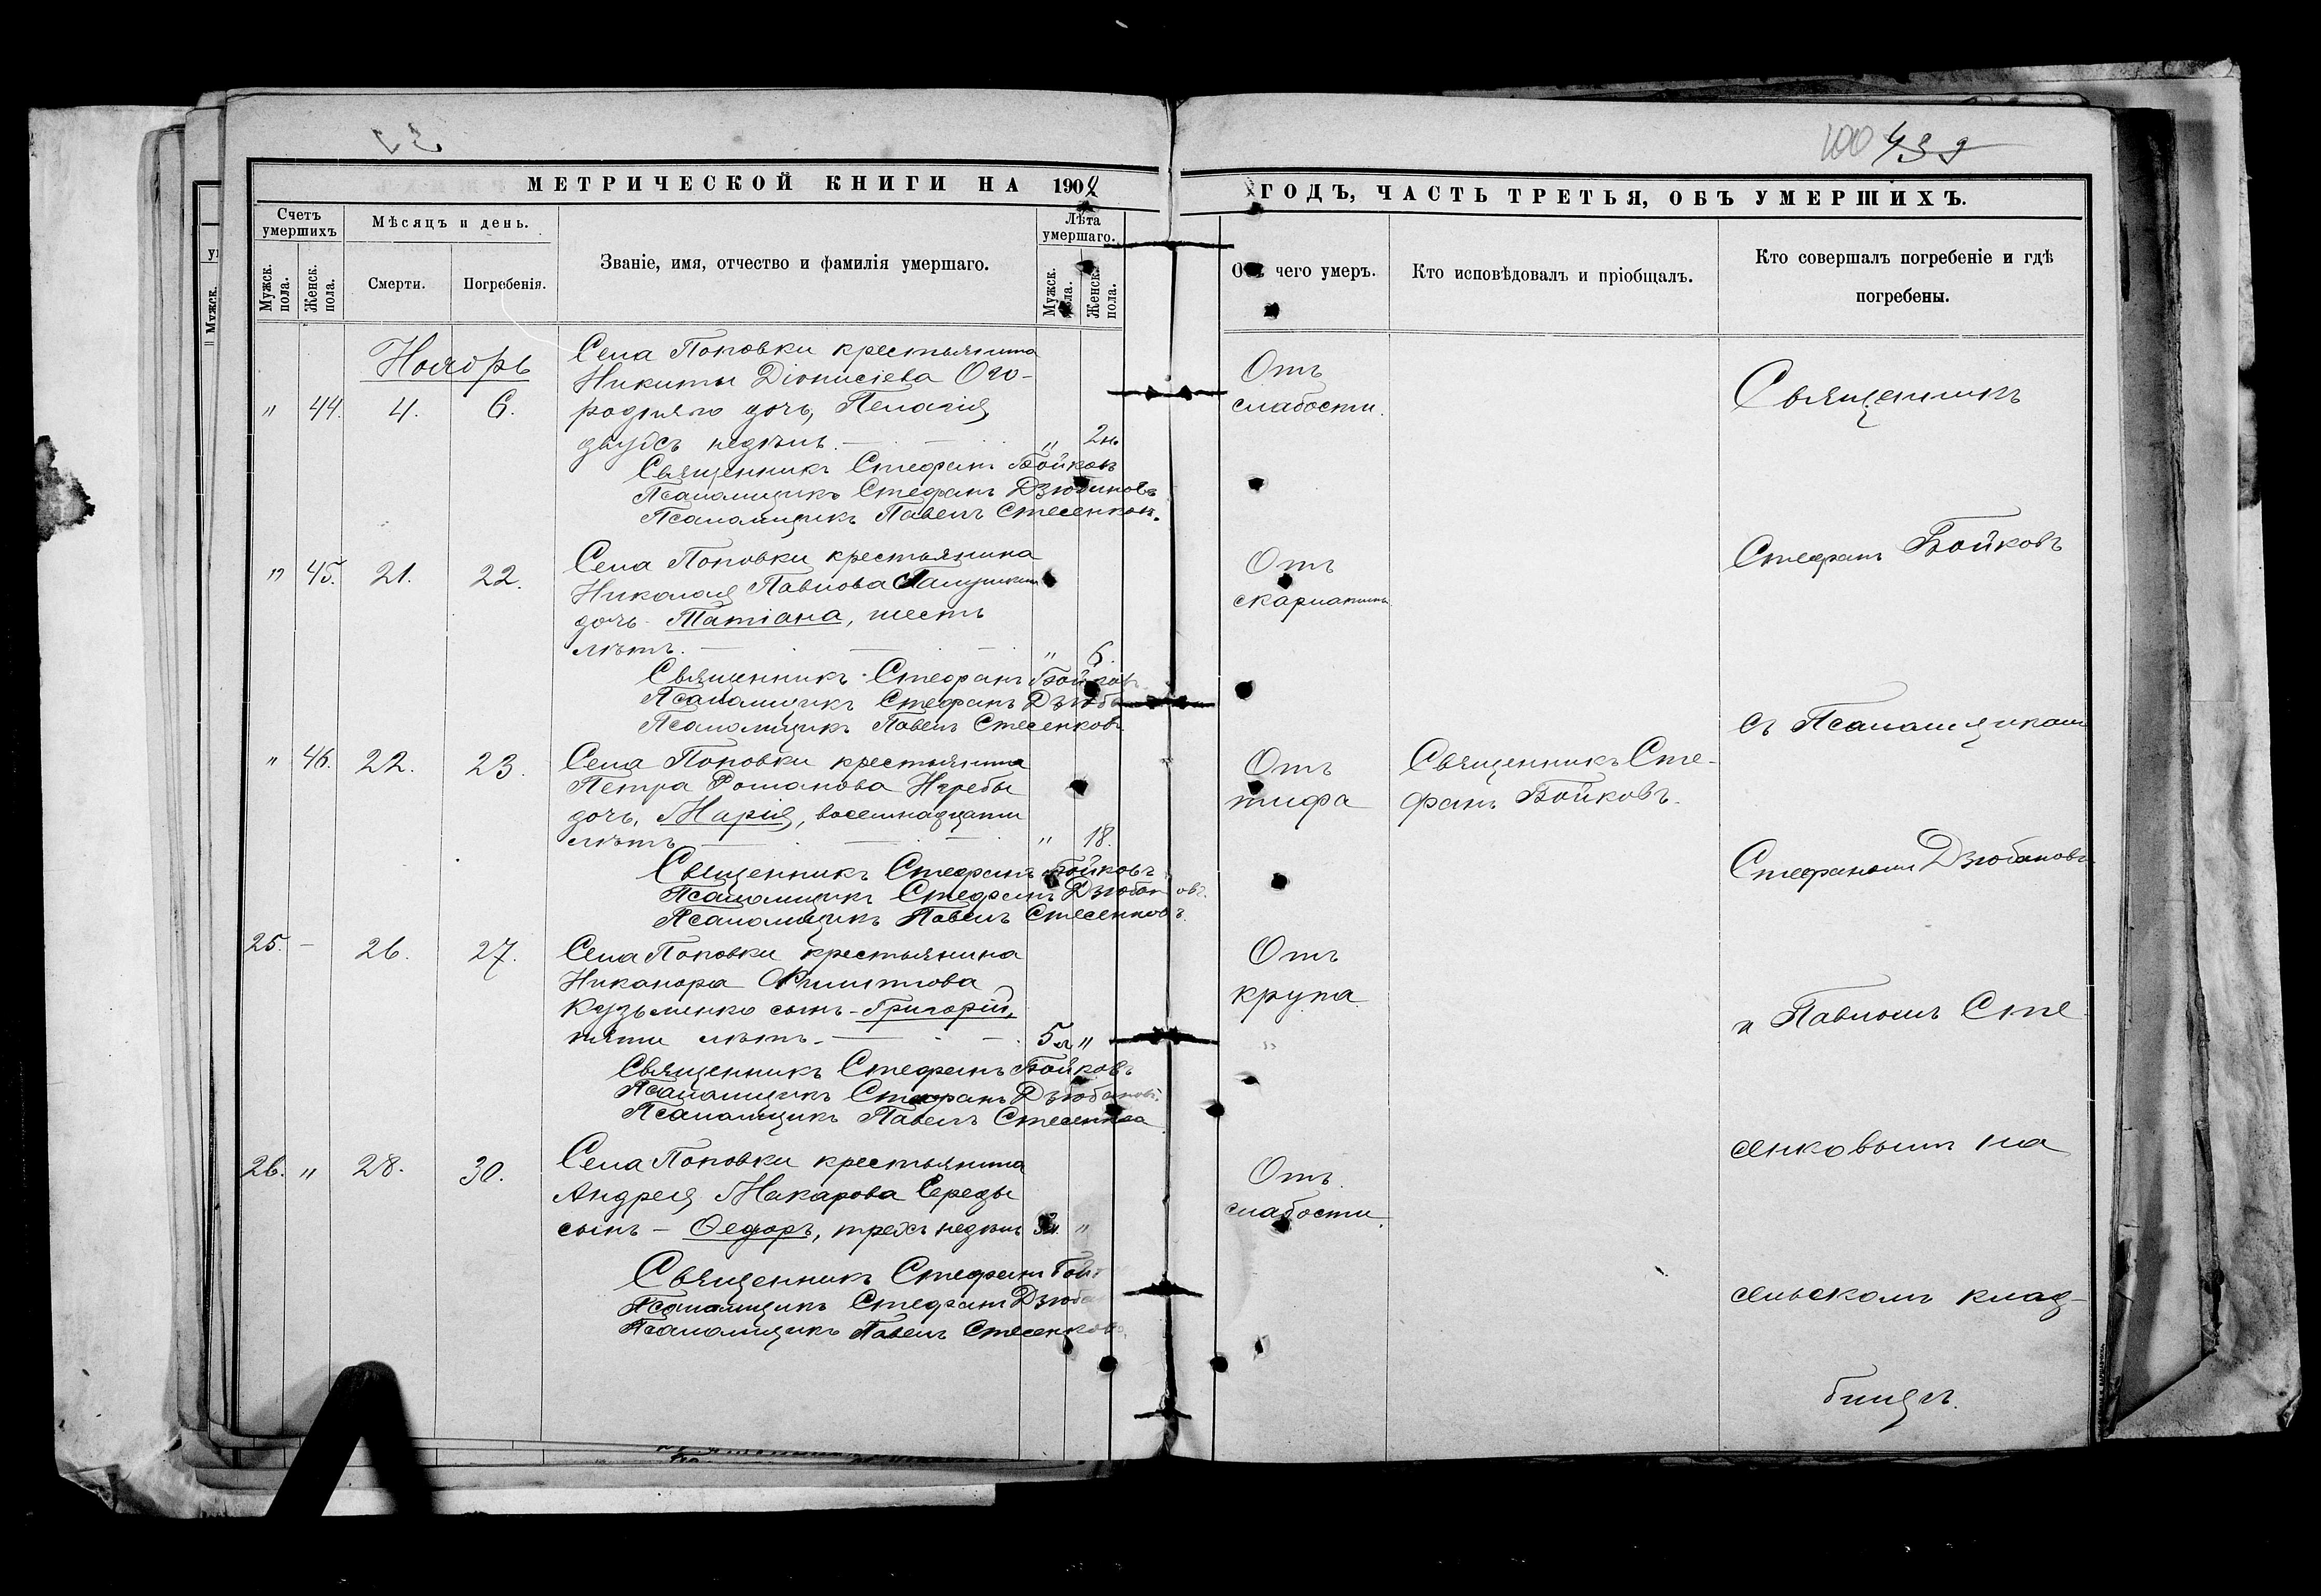 100 499
МЕТРИЧЕСКОЙ КНИГИ НА 1904
ГОДЪ, ЧАСТЬ ТРЕТЬЯ, ОБЪ УМЕРШИХЪ.
Счетъ умершихъ
Мѣсяцъ и день.
Званіе, имя, отчество и фамилія умершаго.
Лѣта умершаго.
Мужск. пола.
Женск. пола.
Смерти.
Погребенія.
Мужск. пола.
Женск. пола.
Отъ чего умеръ.
Кто исповѣдовалъ и пріобщалъ.
Кто совершалъ погребеніе и гдѣ
погребены.
Ноябрь
" 44. 4. 6.
Села Поповки крестьянина
Никиты Діонисіева Ого-
родняго дочь, Пелагія
двухъ недѣль. " 2н.
Священникъ Стефанъ Бойковъ
Псаломщикъ Стефанъ Дзюбановъ
Псаломщикъ Павелъ Стесенковъ.
Отъ
слабости.
" 45. 21. 22.
Села Поповки крестьянина
Николая Павлова
дочь - Татіана, шести
лѣтъ. " 6.
Священникъ Стефанъ Бойковъ
Псаломщикъ Стефанъ Дзюб
Псаломщикъ Павелъ Стесенковъ
Отъ
скарлатины
" 46. 22. 23.
Села Поповки крестьянина
Петра Романова Нгребы
дочь, Марія, восемнадцати
лѣтъ " 18.
Священникъ Стефанъ Бойковъ
Псаломщикъ Стефанъ Дзюбановъ.
Псаломщикъ Павелъ Стесенковъ.
Отъ
тифа
Священникъ Сте-
фанъ Бойковъ.
25. - 26. 27.
Села Поповки крестьянина
Никанора
Кузьменко сынъ - Григорій,
пяти лѣтъ. 5л "
Священникъ Стефанъ Бойковъ
Псаломщикъ Стефанъ Дзюбановъ.
Псаломщикъ Павелъ Стесенков
Отъ
крупа
26. " 28. 30.
Села Поповки крестьянина
Андрея Макарова Середы
сынъ - Ѳедоръ, трехъ недѣль 3н. "
Священникъ Стефанъ Бой
Псаломщикъ Стефанъ Дзюба
Псаломщикъ Павелъ Стесенковъ.
Отъ
слабости.
Священникъ
Стефанъ Бойковъ
съ Псаломщиками
Стефаномъ Дзюбановъ
и Павломъ Сте
сенковымъ на
сельскомъ клад-
бищѣ.